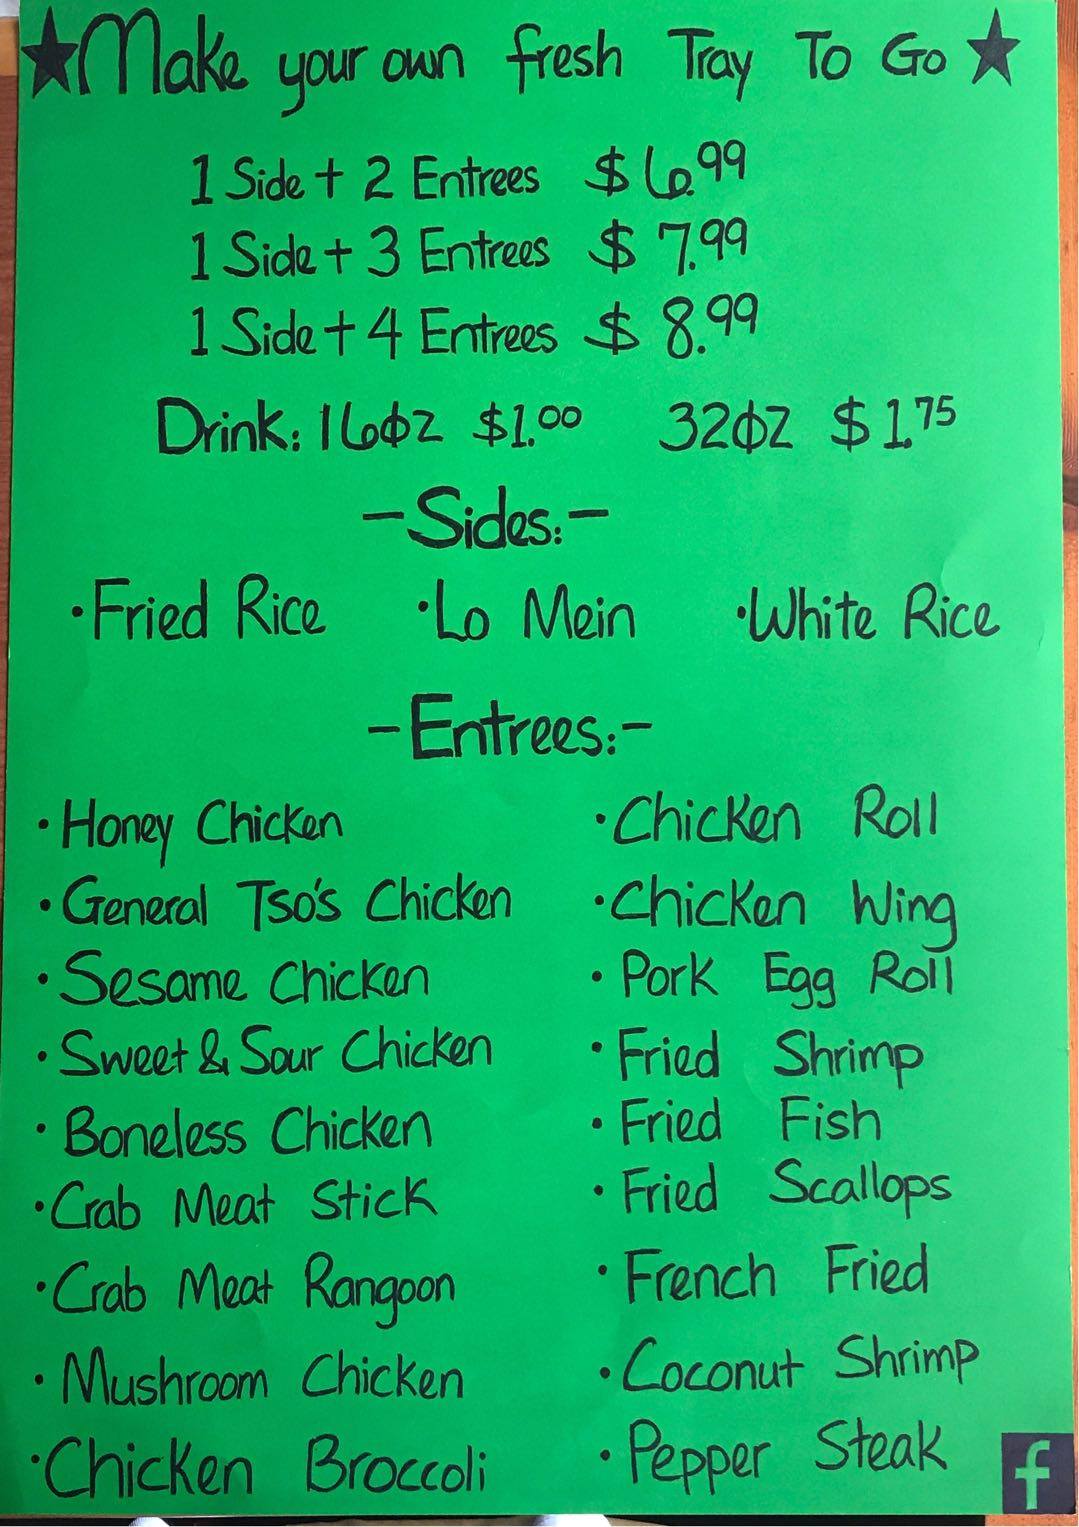 ★Make your own fresh Tray To Go★
1 Side + 2 Entrees $6.99
1 Side + 3 Entrees $7.99
1 Side + 4 Entrees $8.99
Drink: 16OZ $1.00 32OZ $1.75
-Sides:-
·Fried Rice ·Lo Mein ·White Rice
-Entrees:-
·Honey Chicken
·General Tso's Chicken
·Sesame Chicken
·Sweet & Sour Chicken
·Boneless Chicken
·Crab Meat Stick
·Crab Meat Rangoon
·Mushroom Chicken
·Chicken Broccoli
·Chicken Roll
·Chicken Wing
·Pork Egg Roll
·Fried Shrimp
·Fried Fish
·Fried Scallops
·French Fried
·Coconut Shrimp
·Pepper Steak
f